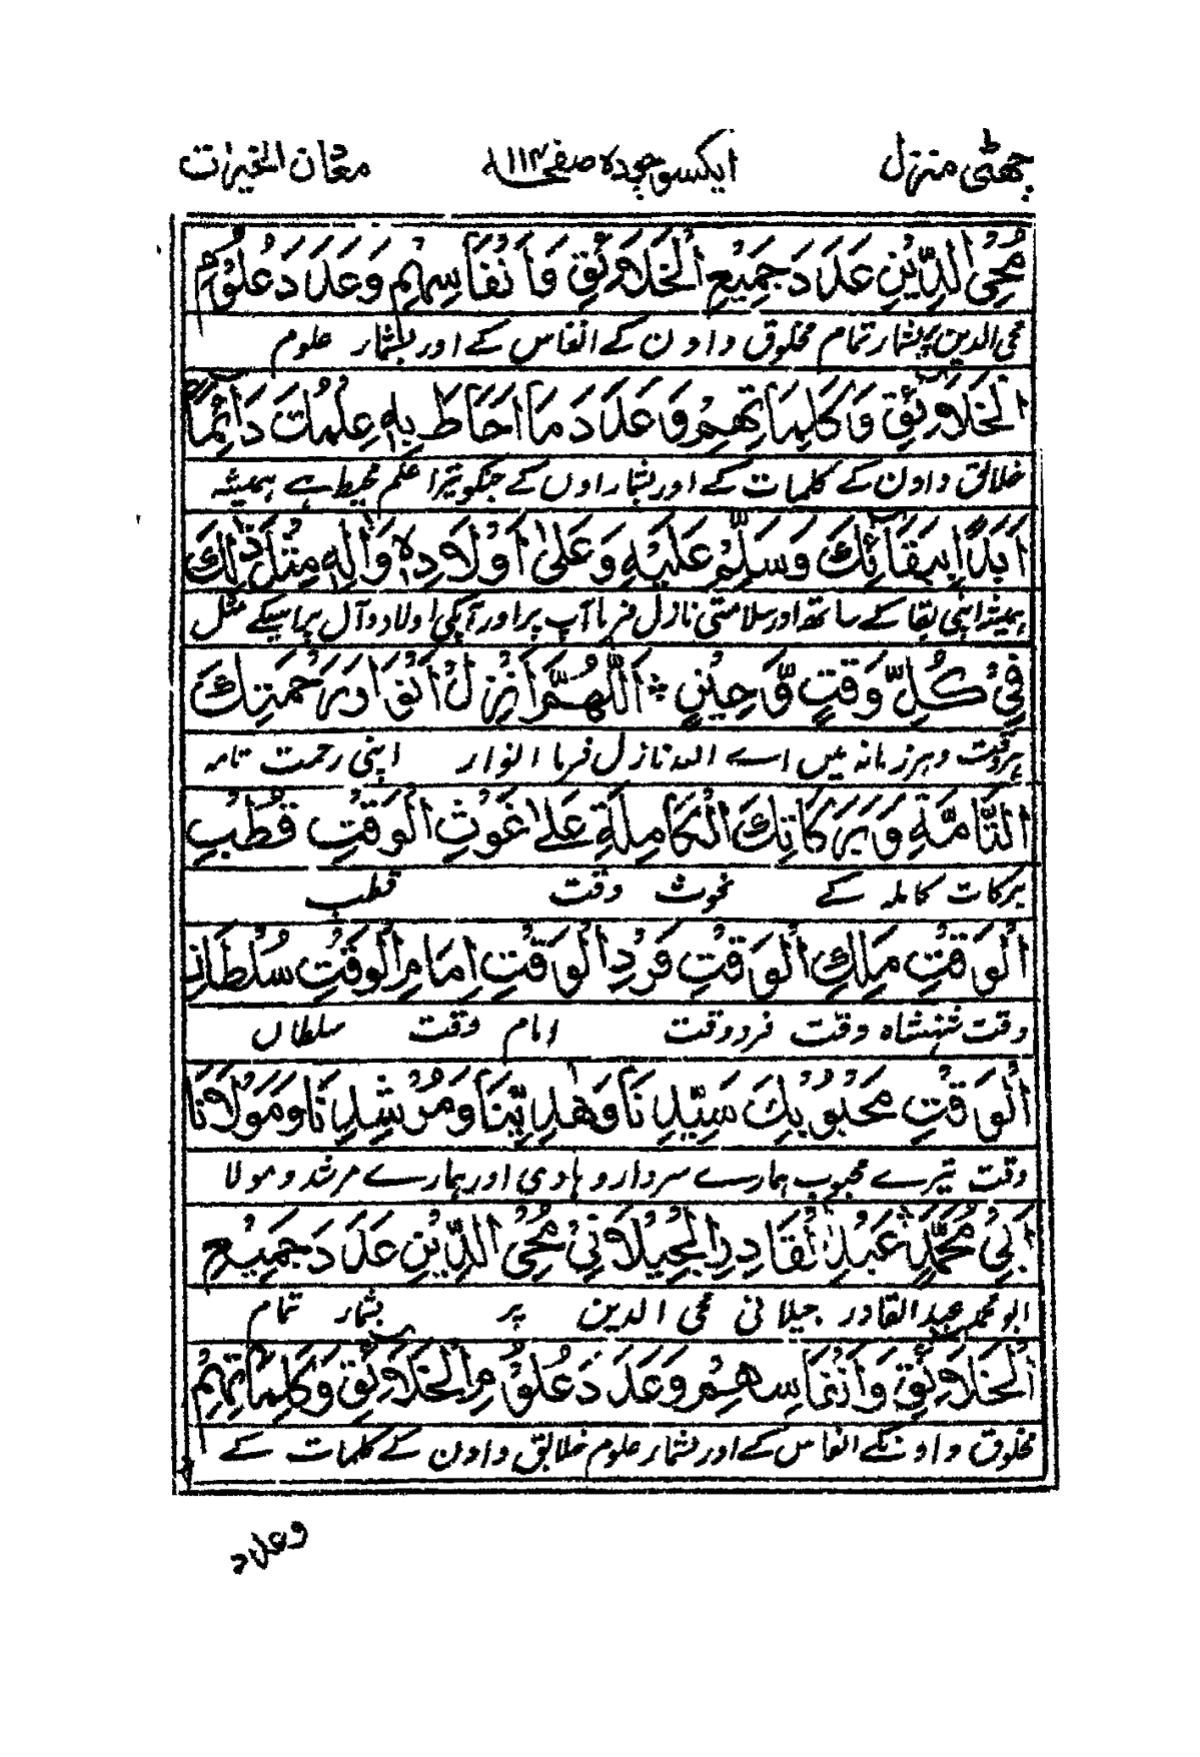 چھٹی منزل ایکسو چودہ صفحہ ۱۱۴ معان الخیرات
مُحْیِ الدِّیْنِ عَدَدَ جَمِیْعِ الْخَلَائِقِ وَاَنْفَاسِهِمْ وَعَدَدَ عُلُوْمِ
محی الدین پر بشمار تمام مخلوق و اون کے انفاس کے اور بشمار علوم
الْخَلَائِقِ وَكَلِمَاتِهِمْ وَعَدَدَ مَا اَحَاطَ بِهٖ عِلْمُكَ دَائِمًا
خلائق و اون کے کلمات کے اور بشمار اوں کے جنکو تیرا علم محیط ہے ہمیشہ
اَبَدًا بِبَقَائِكَ وَسَلِّمْ عَلَیْهِ وَعَلٰی اَوْلَادِهٖ وَاٰلِهٖ مِثْلَ ذٰلِكَ
ہمیشہ اپنی بقا کے ساتھ اور سلامتی نازل فرما آپ پر اور آپکی اولاد و آل پر اسیکے مثل
فِیْ كُلِّ وَقْتٍ وَّحِیْنٍ ۞ اَللّٰهُمَّ اَنْزِلْ اَنْوَارَ رَحْمَتِكَ
ہر وقت و ہر زمانہ میں اے اللہ نازل فرما انوار اپنی رحمت تامہ
التَّامَّةِ وَبَرَكَاتِكَ الْكَامِلَةِ عَلٰی غَوْثِ الْوَقْتِ قُطْبِ
برکات کاملہ کے غوث وقت قطب
الْوَقْتِ مَلِكِ الْوَقْتِ فَرْدِ الْوَقْتِ اِمَامِ الْوَقْتِ سُلْطَانِ
وقت شہنشاہ وقت فرد وقت امام وقت سلطاں
الْوَقْتِ مَحْبُوْبِكَ سَیِّدِنَا وَهَادِیْنَا وَمُرْشِدِنَا وَمَوْلَانَا
وقت تیرے محبوب ہمارے سردار و ہادی اور ہمارے مرشد و مولا
اَبِیْ مُحَمَّدٍ عَبْدِ الْقَادِرِ الْجِیْلَانِیْ مُحْیِ الدِّیْنِ عَدَدَ جَمِیْعِ
ابو محمد عبد القادر جیلانی محی الدین پر بشمار تمام
الْخَلَائِقِ وَاَنْفَاسِهِمْ وَعَدَدَ عُلُوْمِ الْخَلَائِقِ وَكَلِمَاتِهِمْ
مخلوق و اونکے انفاس کے اور بشمار علوم خلایق و اون کے کلمات کے
وعدد